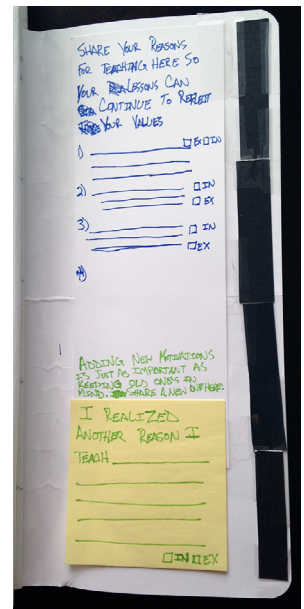 SHARE YOUR REASONS
FOR TEACHING HERE SO
YOUR LESSONS CAN
CONTINUE TO REFLECT
YOUR VALUES
1) ☐ EX ☐ IN
2) ☐ IN
☐ EX
3) ☐ IN
☐ EX
ADDING NEW MOTIVATIONS
IS JUST AS IMPORTANT AS
KEEPING OLD ONES IN
MIND. SHARE A NEW ONE HERE.
I REALIZED
ANOTHER REASON I
TEACH
☐ IN ☐ EX